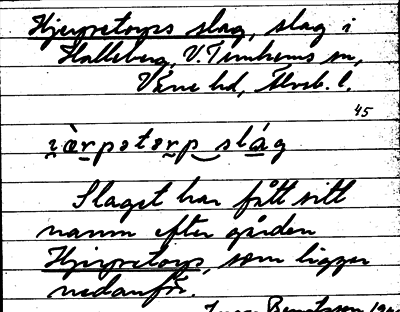 Hjerpetorps slag, slag i
Halleberg, V. Tunhems sn,
Väne hd, Älvsb. l.
45
i̯èrpetɐrp‿slág
Slaget har fått sitt
namn efter gården
Hjerpetorp, som ligger
nedanför.